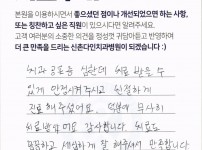 본원을 이용하시면서 좋으셨던 점이나 개선되었으면 하는 사항,
또는 칭찬하고 싶은 직원이 있으시다면 알려주세요.
고객 여러분의 소중한 의견을 정성껏 귀담아듣고 반영하여
더 큰 만족을 드리는 신촌다인치과병원이 되겠습니다 :)
치과 공포증 심한데 치료 받을 수
있게 안정시켜주시고 친절하게
진료해주셨어요. 덕분에 무사히
치료받았어요 감사합니다. 치료도
꼼꼼하고 세심하게 잘 해주셔서 만족합니다.